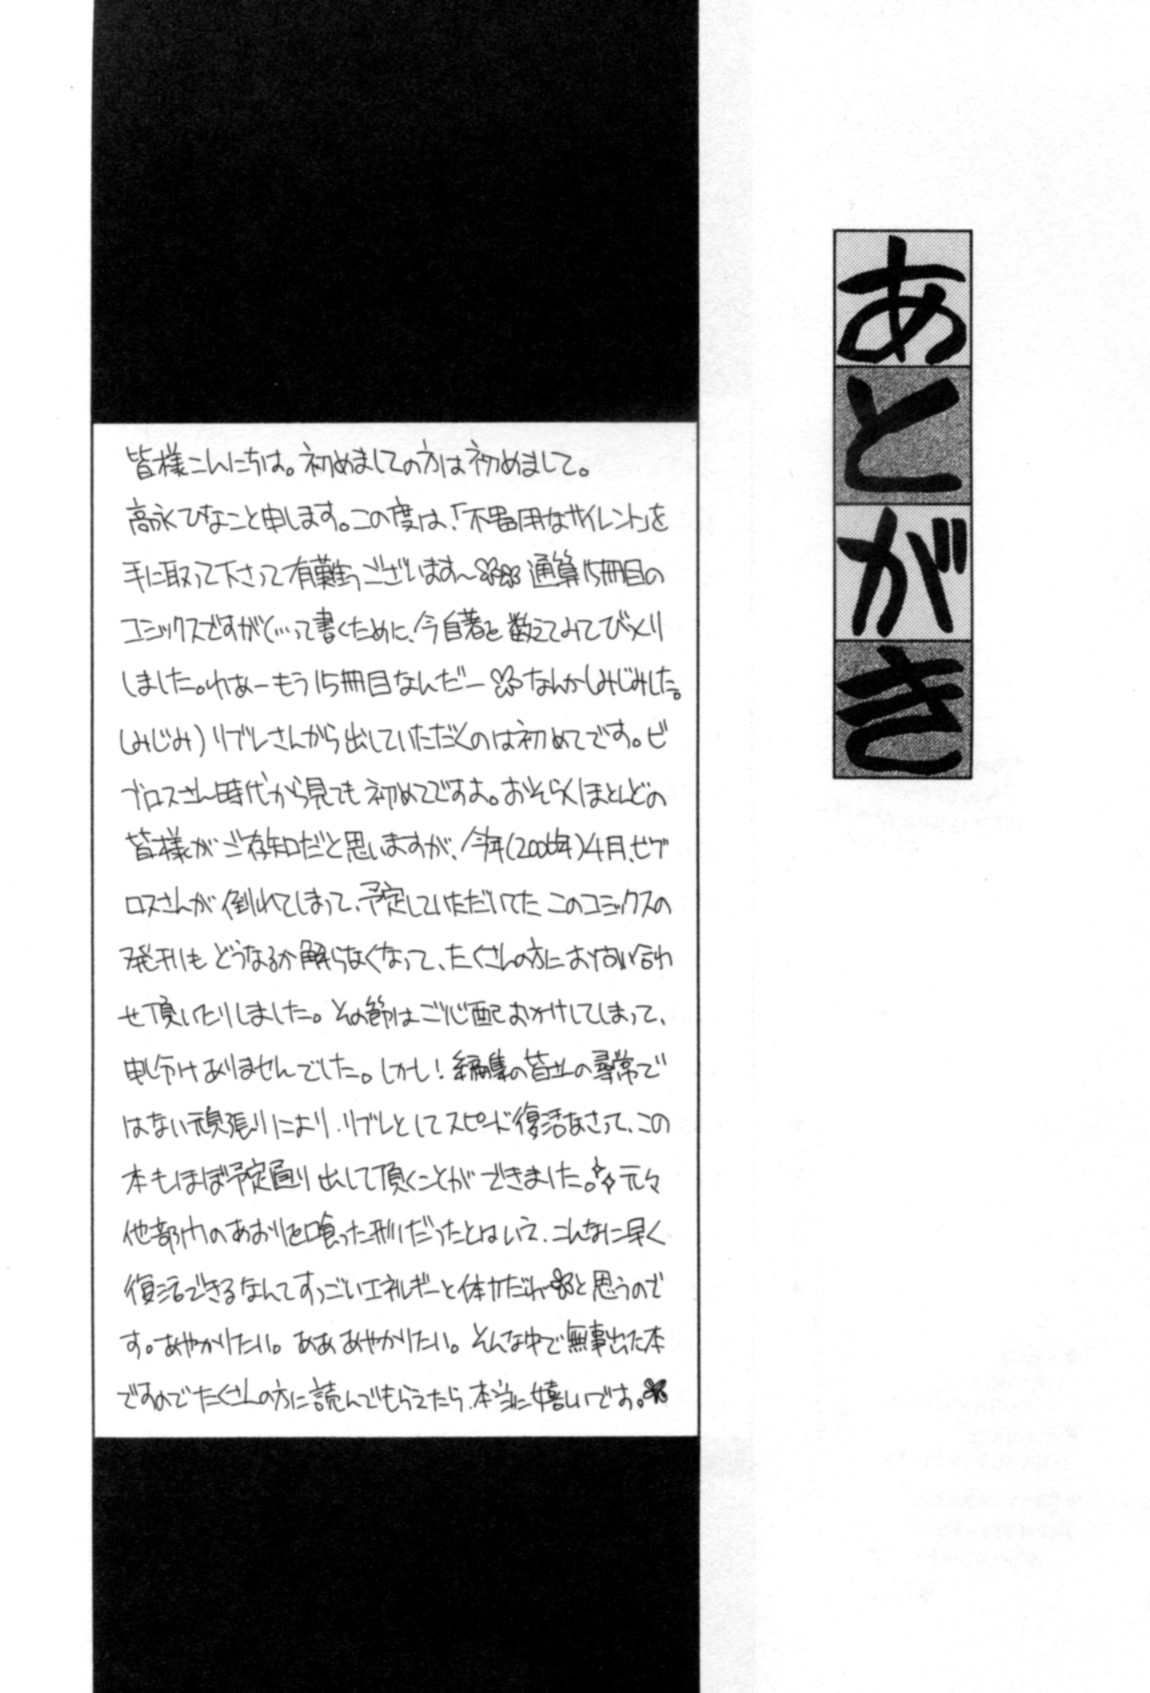 あとがき
皆様こんにちは。初めましての方は初めまして。
高永ひなこと申します。この度は、「不器用なサイレント」を
手に取って下さって有難うございます〜 通算15冊目の
コミックスですが(…って書くために、今自著を数えてみてびっくり
しました。わぁーもう15冊目なんだー なんかしみじみした。
しみじみ) リブレさんから出していただくのは初めてです。ビ
ブロスさん時代から見ても初めてですよ。おそらくほとんどの
皆様がご存知だと思いますが、今年(2006年)4月、ビブ
ロスさんが倒れてしまって、予定していただいてたこのコミックスの
発刊もどうなるか解らなくなって、たくさんの方にお問い合わ
せ頂いたりしました。その節はご心配おかけしてしまって、
申し分けありませんでした。しかし！編集の皆さんの尋常で
はない頑張りにより、リブレとしてスピード復活なさって、この
本もほぼ予定通り出して頂くことができました。元々
他部門のあおりを喰った形だったとはいえ、こんなに早く
復活できるなんてすっごいエネルギーと体力だわ と思うので
す。あやかりたい。ああ あやかりたい。そんな中で無事出た本
ですのでたくさんの方に読んでもらえたら、本当に嬉しいです。